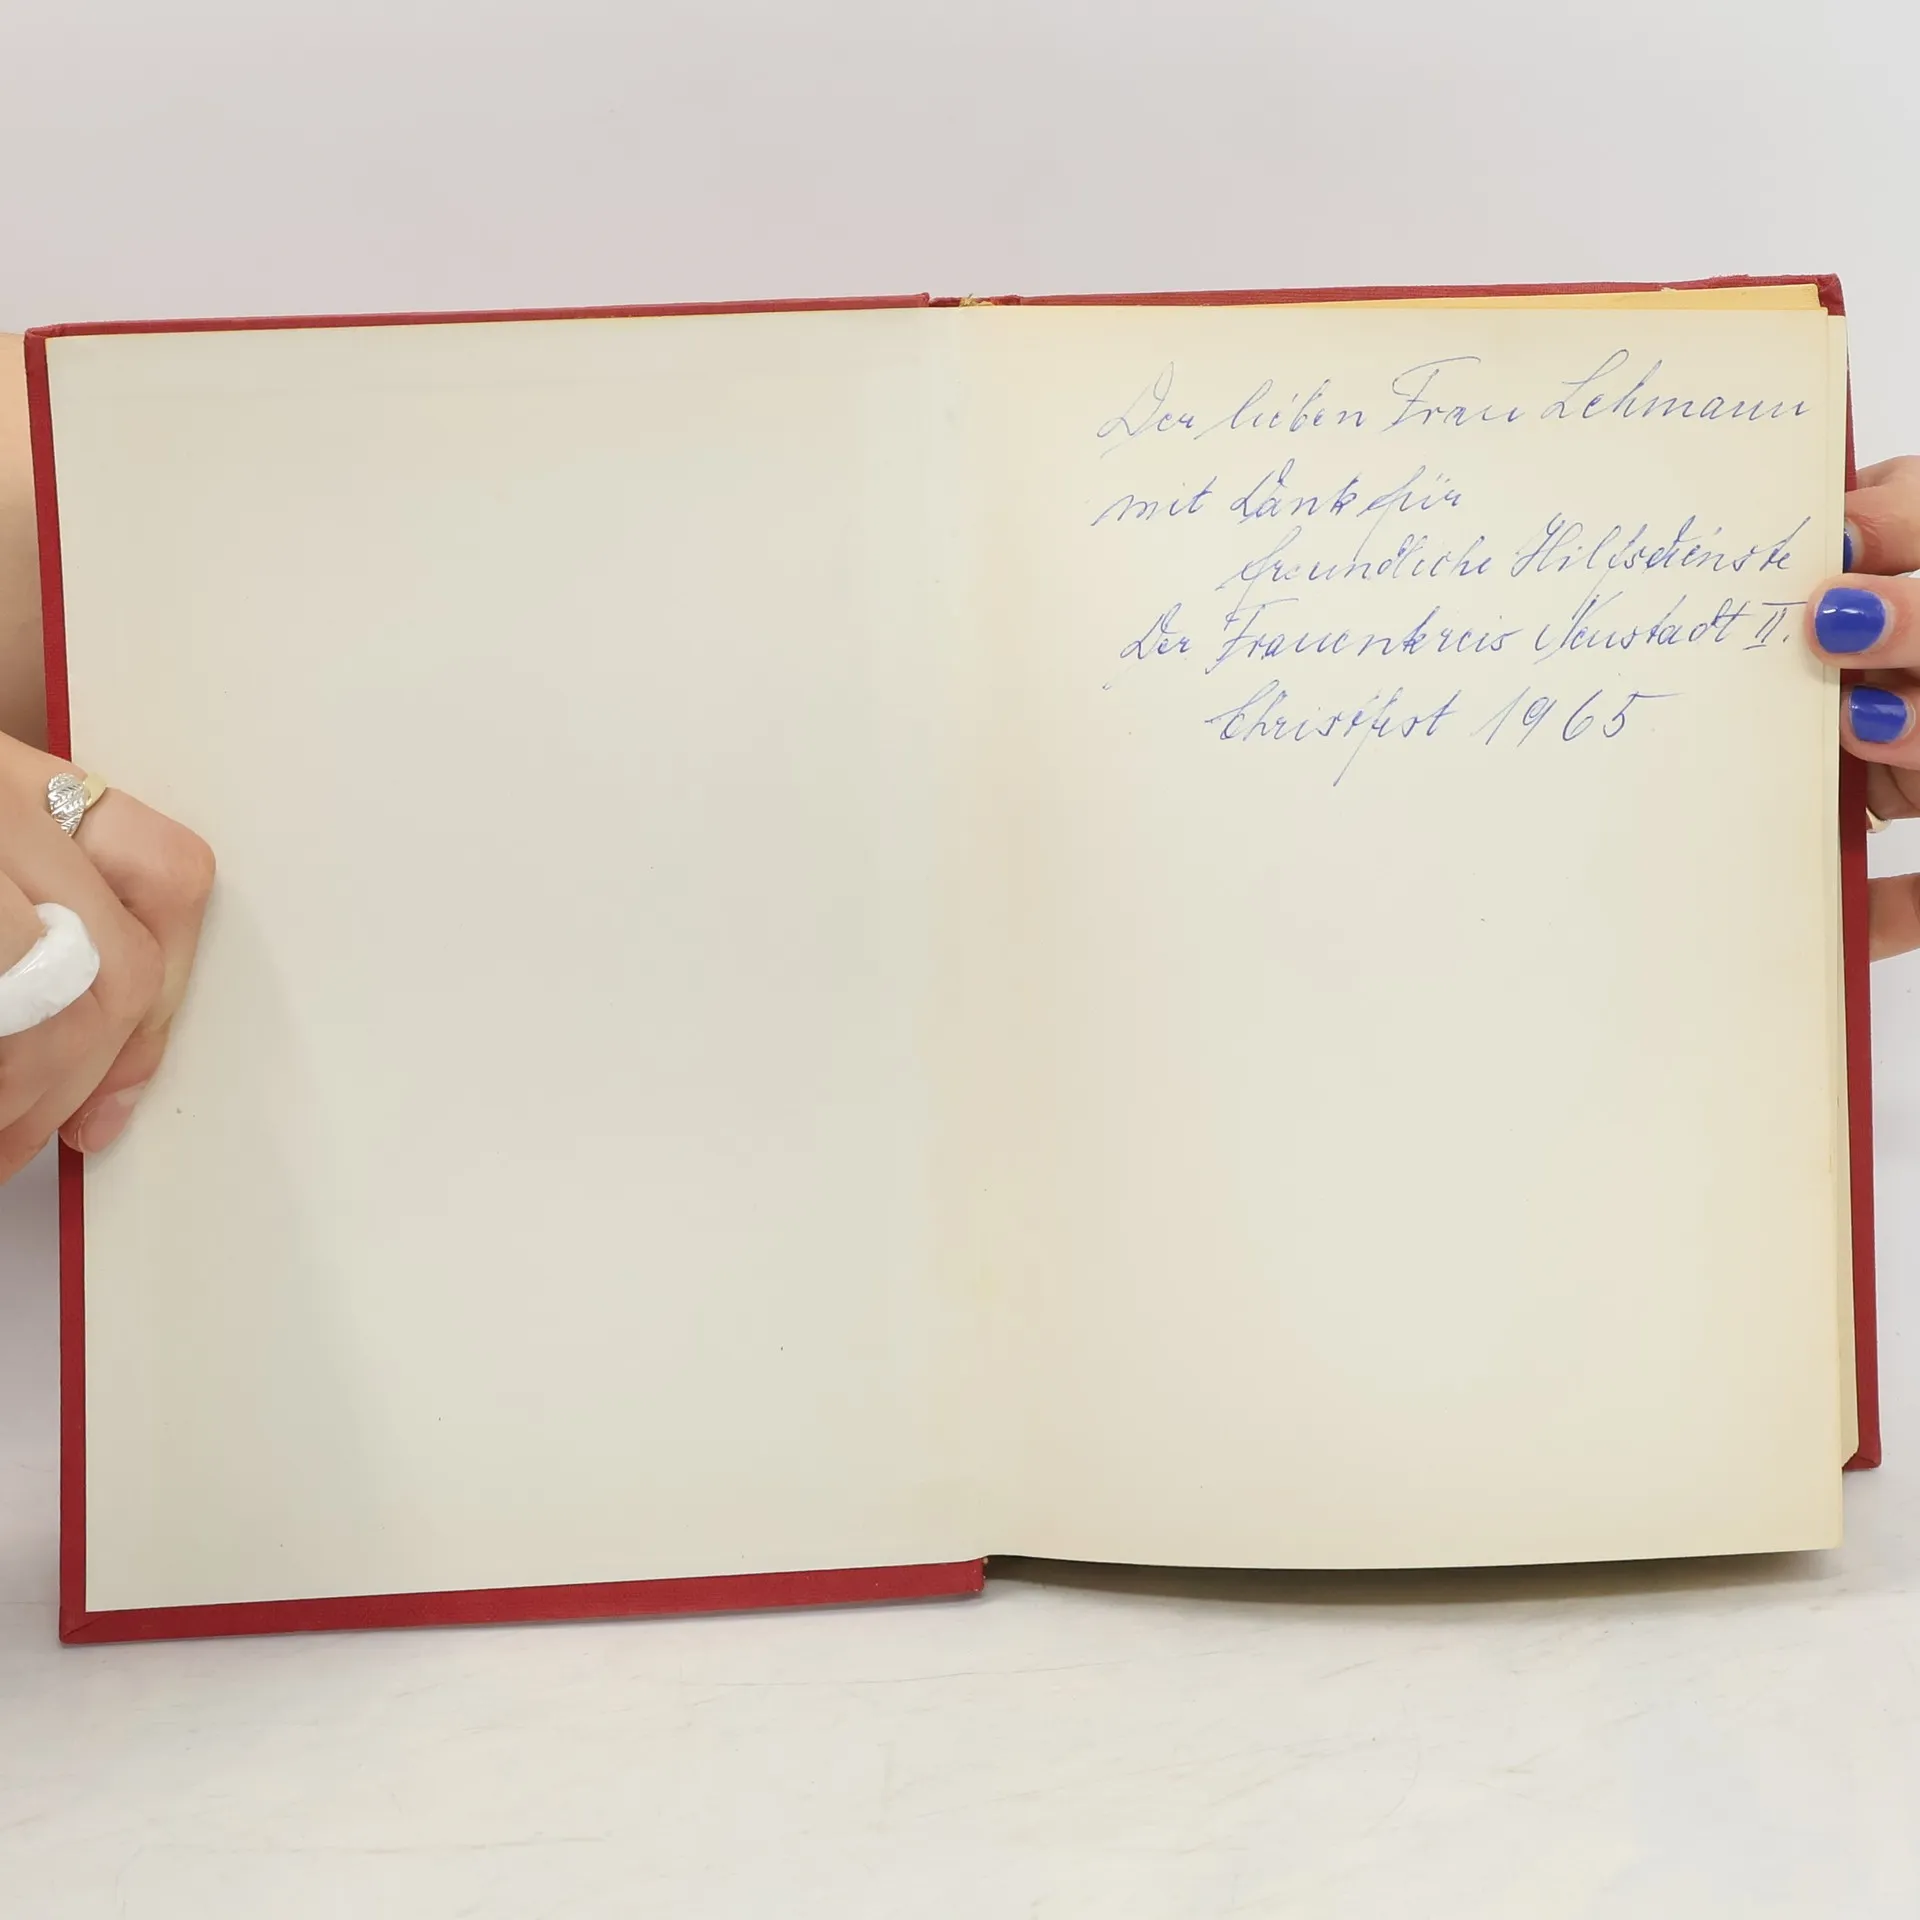 Der lieben Frau Lehmann
mit Dank für
freundliche Hilfsdienste
Der Frauenkreis Neustadt II.
Christfest 1965